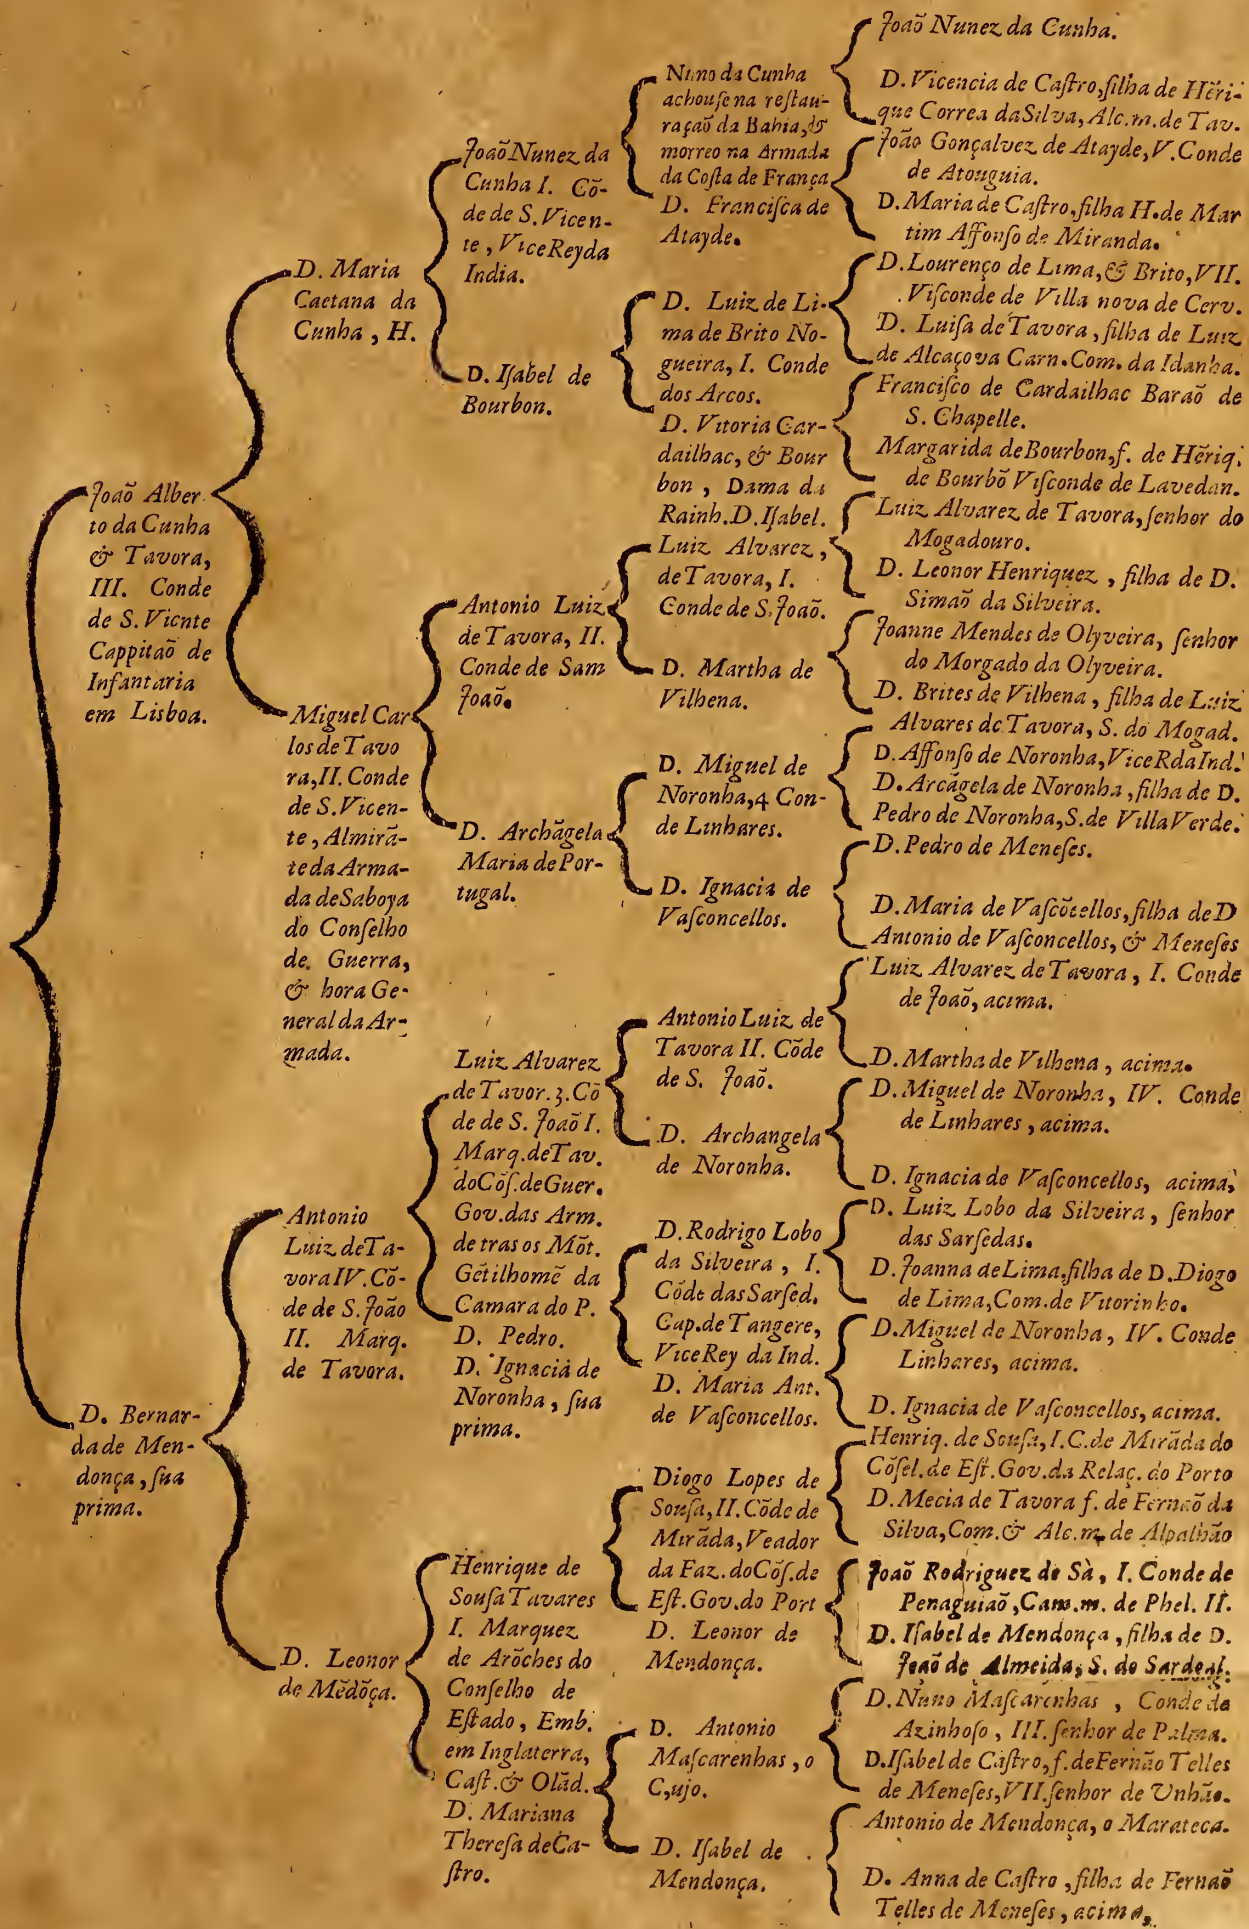 João Alber-
to da Cunha
& Tavora,
III. Conde
de S. Vicnte
Cappitaõ de
Infantaria
em Lisboa.
D. Bernar-
da de Men-
donça, ſua
prima.
D. Maria
Caetana da
Cunha, H.
Miguel Car
los de Tavo
ra, II. Conde
de S. Vicen-
te, Almirã-
te da Arma-
da de Saboya
do Conſelho
de Guerra,
& hora Ge-
neral da Ar-
mada.
Antonio
Luiz de Ta-
vora IV. Cõ-
de de S. João
II. Marq.
de Tavora.
D. Leonor
de Mẽdõça.
Joaõ Nunez da
Cunha I. Cõ-
de de S. Vicen-
te, Vice Rey da
India.
D. Iſabel de
Bourbon.
Antonio Luiz
de Tavora, II.
Conde de Sam
Joaõ.
D. Archãgela
Maria de Por-
tugal.
Luiz Alvarez
de Tavor. 3. Cõ
de de S. Joaõ I.
Marq. de Tav.
do Cõſ. de Guer.
Gov. das Arm.
de tras os Mõt.
Gẽtilhomẽ da
Camara do P.
D. Pedro.
D. Ignacia de
Noronha, ſua
prima.
Henrique de
Souſa Tavares
I. Marquez
de Arõches do
Conſelho de
Eſtado, Emb.
em Inglaterra,
Caſt. & Olãd.
D. Mariana
Thereſa de Ca-
ſtro.
Nuno da Cunha
achouſe na reſtau-
raçaõ da Bahia, &
morreo na Armada
da Coſta de França
D. Franciſca de
Atayde.
D. Luiz de Li-
ma de Brito No-
gueira, I. Conde
dos Arcos.
D. Vitoria Car-
dailhac, & Bour
bon, Dama da
Rainh. D. Iſabel.
Luiz Alvarez,
de Tavora, I.
Conde de S. Joaõ.
D. Martha de
Vilhena.
D. Miguel de
Noronha, 4 Con-
de Linhares.
D. Ignacia de
Vaſconcellos.
Antonio Luiz de
Tavora II. Cõde
de S. Joaõ.
D. Archangela
de Noronha.
D. Rodrigo Lobo
da Silveira, I.
Cõde das Sarſed.
Cap. de Tangere,
Vice Rey da Ind.
D. Maria Ant.
de Vaſconcellos.
Diogo Lopes de
Souſa, II. Cõde de
Mirãda, Veador
da Faz. do Cõſ. de
Eſt. Gov. do Port
D. Leonor de
Mendonça.
D. Antonio
Maſcarenhas, o
C,ujo.
D. Iſabel de
Mendonça.
Joaõ Nunez da Cunha.
D. Vicencia de Caſtro, filha de Hẽri-
que Correa da Silva, Alc. m. de Tav.
João Gonçalvez de Atayde, V. Conde
de Atouguia.
D. Maria de Caſtro, filha H. de Mar
tim Affonſo de Miranda.
D. Lourenço de Lima, & Brito, VII.
Viſconde de Villa nova de Cerv.
D. Luiſa de Tavora, filha de Luiz
de Alcaçova Carn. Com. da Idanha.
Franciſco de Cardailhac Baraõ de
S. Chapelle.
Margarida de Bourbon, f. de Hẽriq.
de Bourbõ Viſconde de Lavedan.
Luiz Alvarez de Tavora, ſenhor do
Mogadouro.
D. Leonor Henriquez, filha de D.
Simaõ da Silveira.
Joanne Mendes de Olyveira, ſenhor
do Morgado da Olyveira.
D. Brites de Vilhena, filha de Luiz
Alvares de Tavora, S. do Mogad.
D. Affonſo de Noronha, Vice R da Ind.
D. Arcãgela de Noronha, filha de D.
Pedro de Noronha, S. de Villa Verde.
D. Pedro de Meneſes.
D. Maria de Vaſcõcellos, filha de D
Antonio de Vaſconcellos, & Meneſes
Luiz Alvarez de Tavora, I. Conde
de Joaõ, acima.
D. Martha de Vilhena, acima.
D. Miguel de Noronha, IV. Conde
de Linhares, acima.
D. Ignacia de Vaſconcellos, acima.
D. Luiz Lobo da Silveira, ſenhor
das Sarſedas.
D. Joanna de Lima, filha de D. Diogo
de Lima, Com. de Vitorinho.
D. Miguel de Noronha, IV. Conde
Linhares, acima.
D. Ignacia de Vaſconcellos, acima.
Henriq. de Souſa, I. C. de Mirãda do
Cõſel. de Eſt. Gov. da Relaç. do Porto
D. Mecia de Tavora f. de Fernaõ da
Silva, Com. & Alc. m. de Alpalhão
Joaõ Rodriguez de Sà, I. Conde de
Penaguiaõ, Cam. m. de Phel. II.
D. Iſabel de Mendonça, filha de D.
Joaõ de Almeida, S. do Sardoal.
D. Nuno Maſcarenhas, Conde da
Azinhoſo, III. ſenhor de Palma.
D. Iſabel de Caſtro, f. de Fernão Telles
de Meneſes, VII. ſenhor de Unhão.
Antonio de Mendonça, o Marateca.
D. Anna de Caſtro, filha de Fernaõ
Telles de Meneſes, acima.